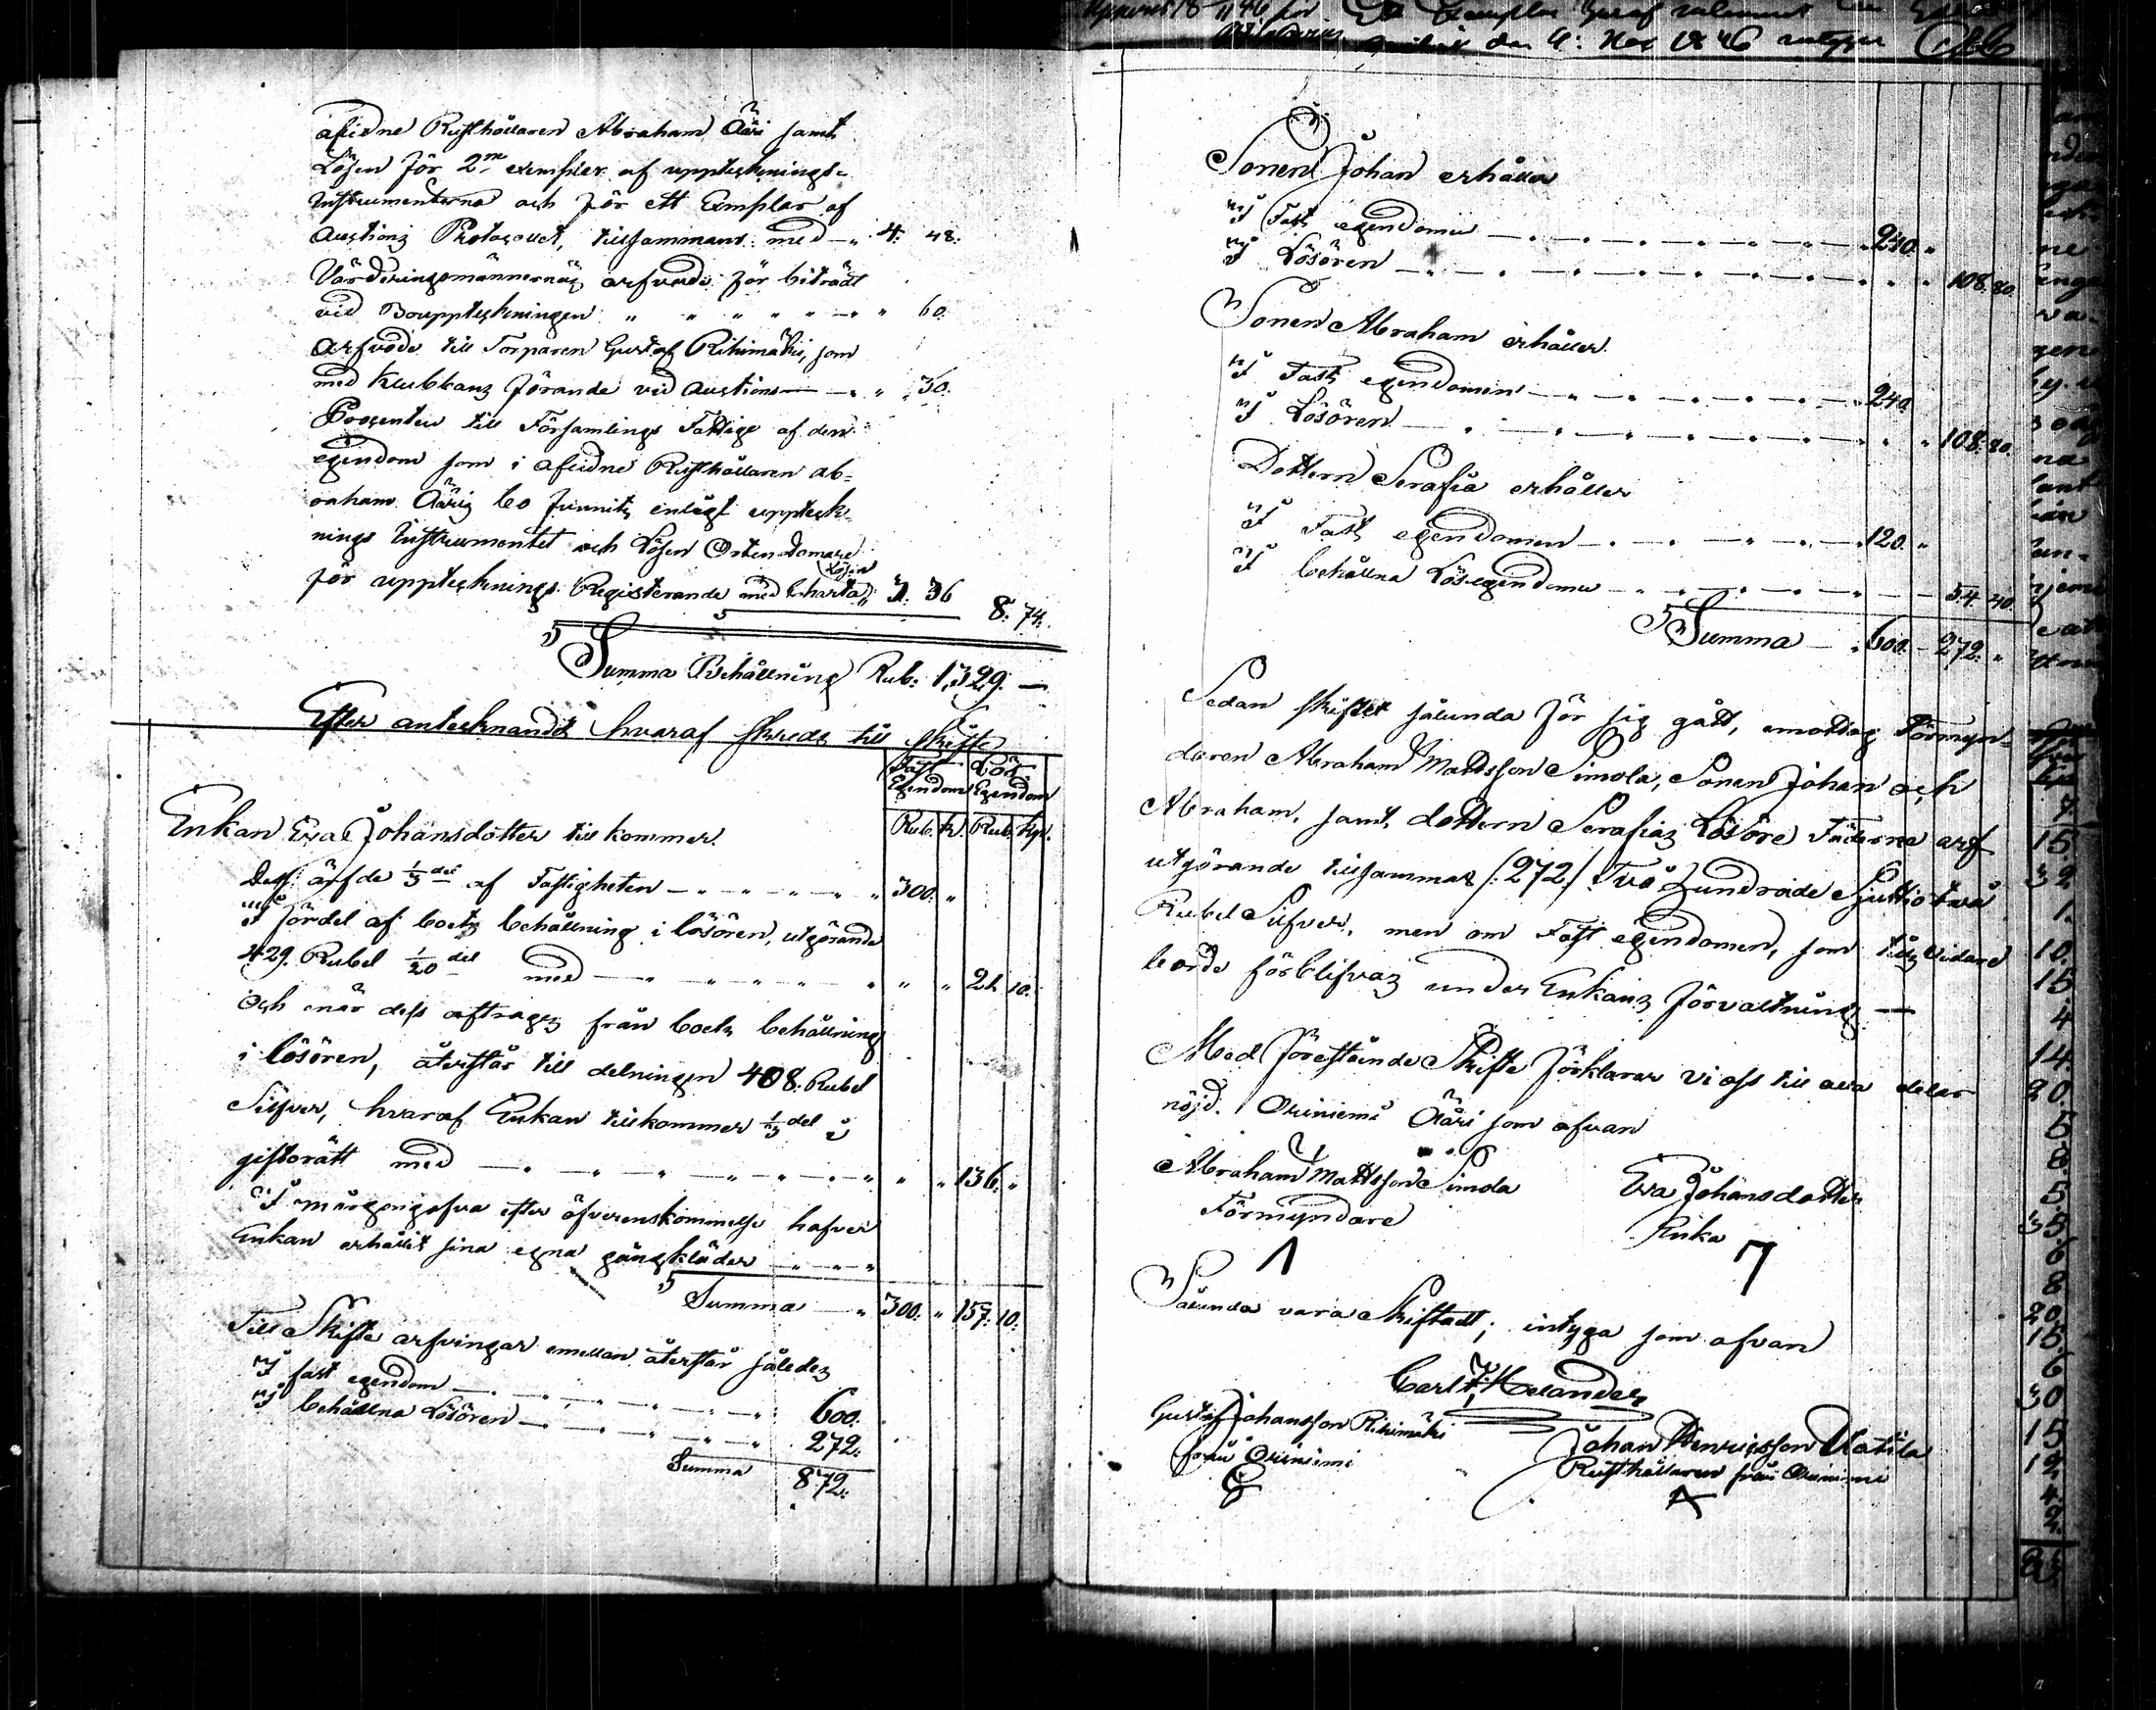 afledne Rusthållaren Abraham Ääri samt
Lösen för 2ne exemplar af uppteknings-
Instrumenterne och för ett Exemplar af
Auctions Protocollet, tillsammans med 4. 48.
Värderingsmännernäs arfvode för biträdt
vid Bouppteckningen " " " " " " 60.
Arfvode till Torparen Gustaf Riihimäki, som
med Klubbans förande vid Auctions " 30.
Procenten till Församlings Fattige af den
egendom som i afledne Rusthållaren Ab-
raham Ääris bo funnits enligt upptek-
nings Instrumentet och Lösen
för upptecknings Registerande med Charta 3. 36 8. 74.
Summa Behållning Rub: 1,329. —
Efter antecknandet hvaraf skreds till skifte
Fast Egendom Lös Egendom
Rub. k. Rub. kp.
Enkan Eva Johansdotter tillkommer.
Dess ärfde 1/3 del af Fastigheten 300. "
I fördel af boets behållning i lösören, utgörande
429. Rubel 1/20 del med " " 21. 10.
Och när dess aftrages från boets behållning
i lösören, återstår till delningen 408. Rubel
Silfver, hvaraf Enkan tillkommer 1/3 del i
giftorätt med " " 136. "
I morgongofva efter öfverenskommelse hafver
Enkan erhållit sina egna gångkläder
Summa 300. " 157. 10.
Till Skifte arfvingar emellan återstår således
I fast egendom 600.
I behållna Lösören 272.
Summa 872.
den 4: Nov 1846
Sonen Johan erhåller
I Fast egendomen 240. "
I Lösören 108. 80.
Sonen Abraham erhåller.
I Fast egendomen 240
I Lösören 108. 80.
Dottern Serafia erhåller
I Fast egendomen 120. "
I behållna Lösegendomen 54. 40.
Summa 600. 272. "
Sedan skiftet sålunda för sig gått, emottog Förmyn-
daren Abraham Mattsson Simola, Sonens Johan och
Abraham, samt dottern Serafias Lösöre Fäderne arf
utgörande tillsammans /:272:/ Två Hundrade Sjuttiotvå
Rubel Silfver, men om Fast egendomen, som tills vidare
borde förblifvas under Enkans förvaltning —
Med föreståinde Skifte förklarar vi oss till alla delar
nöjd. Oriniemi Ääri som ofvan
Abraham Mattsson Simola Eva Johansdotter
Förmyndare Enka
Sålunda vara Skiftadt; intyga som ofvan
Carl F. Helander
Gustaf Johansson Riihimäki Johan Henricsson Uotila
från Oriniemi Rusthållaren från Oriniemi